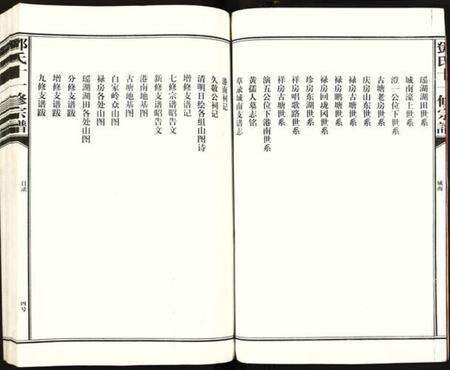 鄧氏十一修宗譜
城南
瑶湖湖田世系
城南濠上世系
澄一公位下世系
古塘老房世系
庆房山东世系
禄房古塘世系
禄房鹏塘世系
禄房回垅冈世系
珍房东湖世系
祥房唱歌路世系
祥房古塘世系
演五公位下港南世系
黄孺人墓志铭
草录城南支谱志
港南祠记
久敬公祠记
清明日绘各组山图诗
增修支谱记
七修宗谱昭告文
新修支谱昭告文
港南地基图
古塘地基图
白家岭众山图
禄房各处山图
瑶湖湖田各处山图
分修支谱跋
增修支谱跋
九修支谱跋
邓氏十一修宗譜
目录
四号